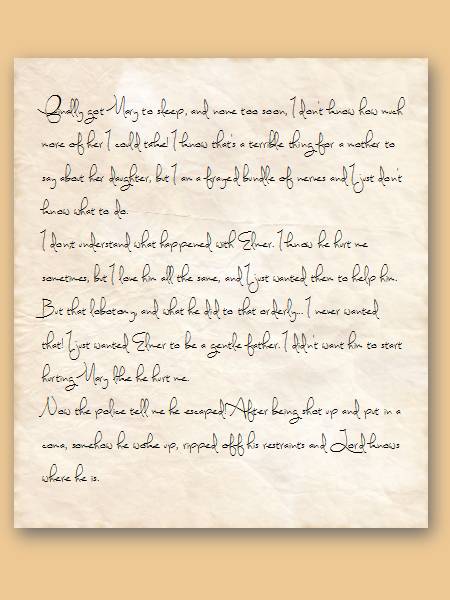 Finally got Mary to sleep, and none too soon, I don't know how much
more of her I could take! I know that's a terrible thing for a mother to
say about her daughter, but I am a frayed bundle of nerves and I just don't
know what to do.
I don't understand what happened with Elmer. I know he hurt me
sometimes, but I love him all the same, and I just wanted them to help him.
But that lobotomy, and what he did to that orderly... I never wanted
that! I just wanted Elmer to be a gentle father. I didn't want him to start
hurting Mary like he hurt me.
Now the police tell me he escaped! After being shot up and put in a
coma, somehow he woke up, ripped off his restraints and Lord knows
where he is.